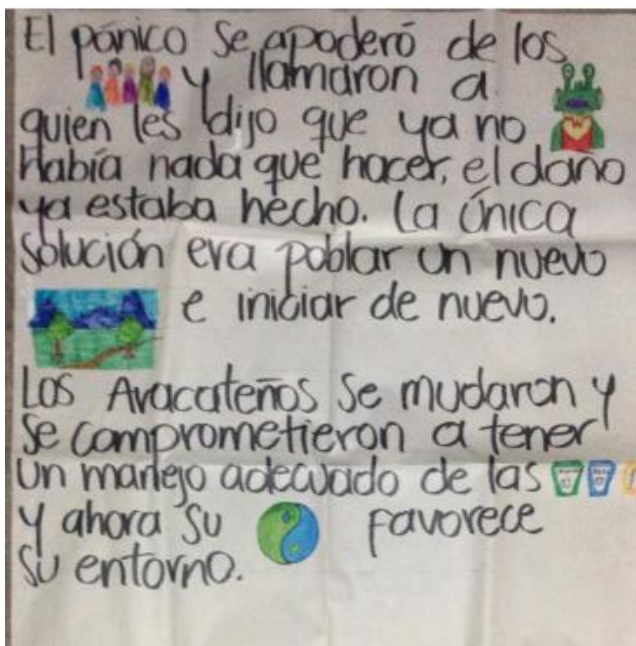 El pánico se apoderó de los
y llamaron a
quien les dijo que ya no
había nada que hacer, el daño
ya estaba hecho. La única
solución era poblar un nuevo
e iniciar de nuevo.
Los Aracateños se mudaron y
se comprometieron a tener
un manejo adecuado de las
y ahora su favorece
su entorno.